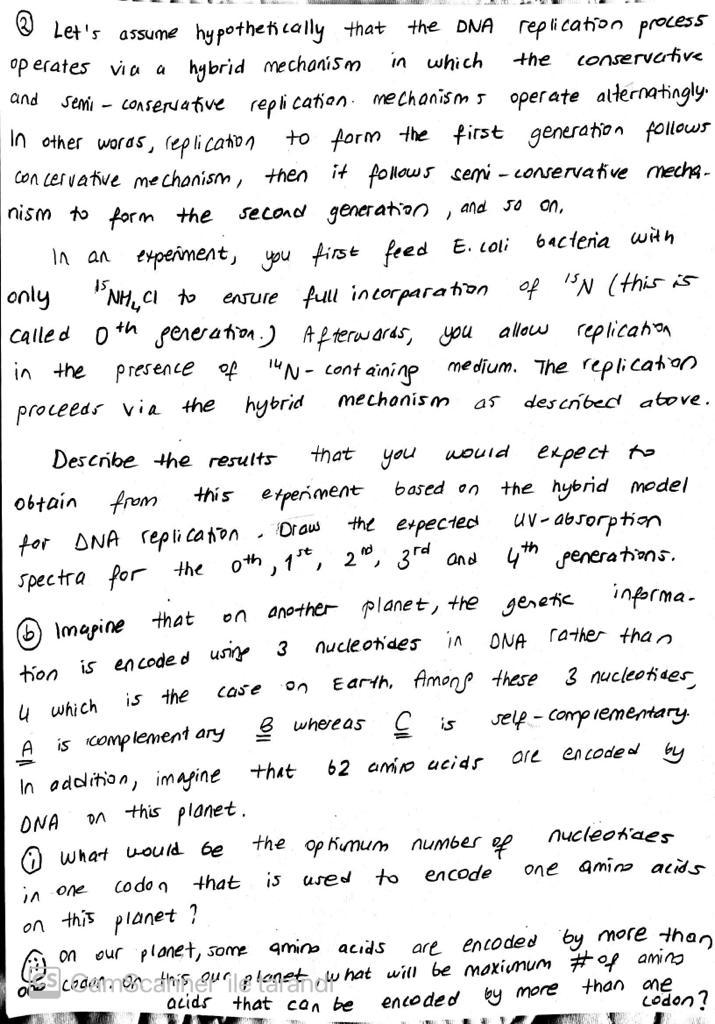 ② Let's assume hypothetically that the DNA replication process
operates via a hybrid mechanism in which the conservative
and semi-conservative replication mechanisms operate alternatingly.
In other words, replication to form the first generation follows
concervative mechanism, then it follows semi-conservative mecha-
nism to form the second generation, and so on.
In an experiment, you first feed E. coli bacteria with
only ¹⁵NH₄Cl to ensure full incorparation of ¹⁵N (this is
called 0th generation.) Afterwards, you allow replication
in the presence of ¹⁴N-containing medium. The replication
proceeds via the hybrid mechanism as described above.
Describe the results that you would expect to
obtain from this experiment based on the hybrid model
for DNA replication. Draw the expected UV-absorption
spectra for the 0th, 1st, 2nd, 3rd and 4th generations.
ⓑ Imagine that on another planet, the genetic informa-
tion is encoded using 3 nucleotides in DNA rather than
4 which is the case on Earth. Among these 3 nucleotides,
A is complementary B whereas C is self-complementary.
In addition, imagine that 62 amino acids are encoded by
DNA on this planet.
ⓘ What would be the optimum number of nucleotides
in one codon that is used to encode one amino acids
on this planet?
ⓘⓘ on our planet, some amino acids are encoded by more than
one codon. On this our planet, what will be maximum # of amino
acids that can be encoded by more than one codon?
CS CamScanner ile tarandı